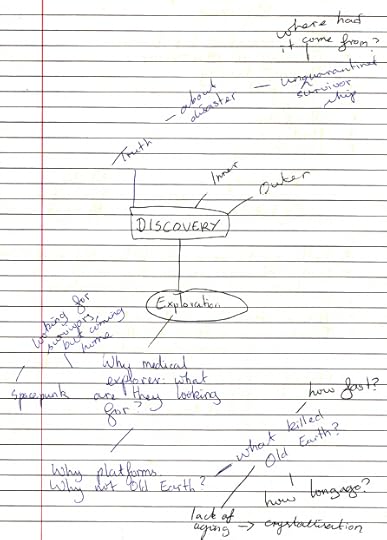 where had
it come from?
unquarantined
survivor
ship
about
disaster
Truth
Inner
Outer
DISCOVERY
Exploration
looking for
survivors
but coming
home
Spacepunk
Why medical
explorer: what
are they looking
for?
how fast?
what killed
Old Earth?
Why platforms.
Why not Old Earth?
how long ago?
lack of
aging → crystallisation